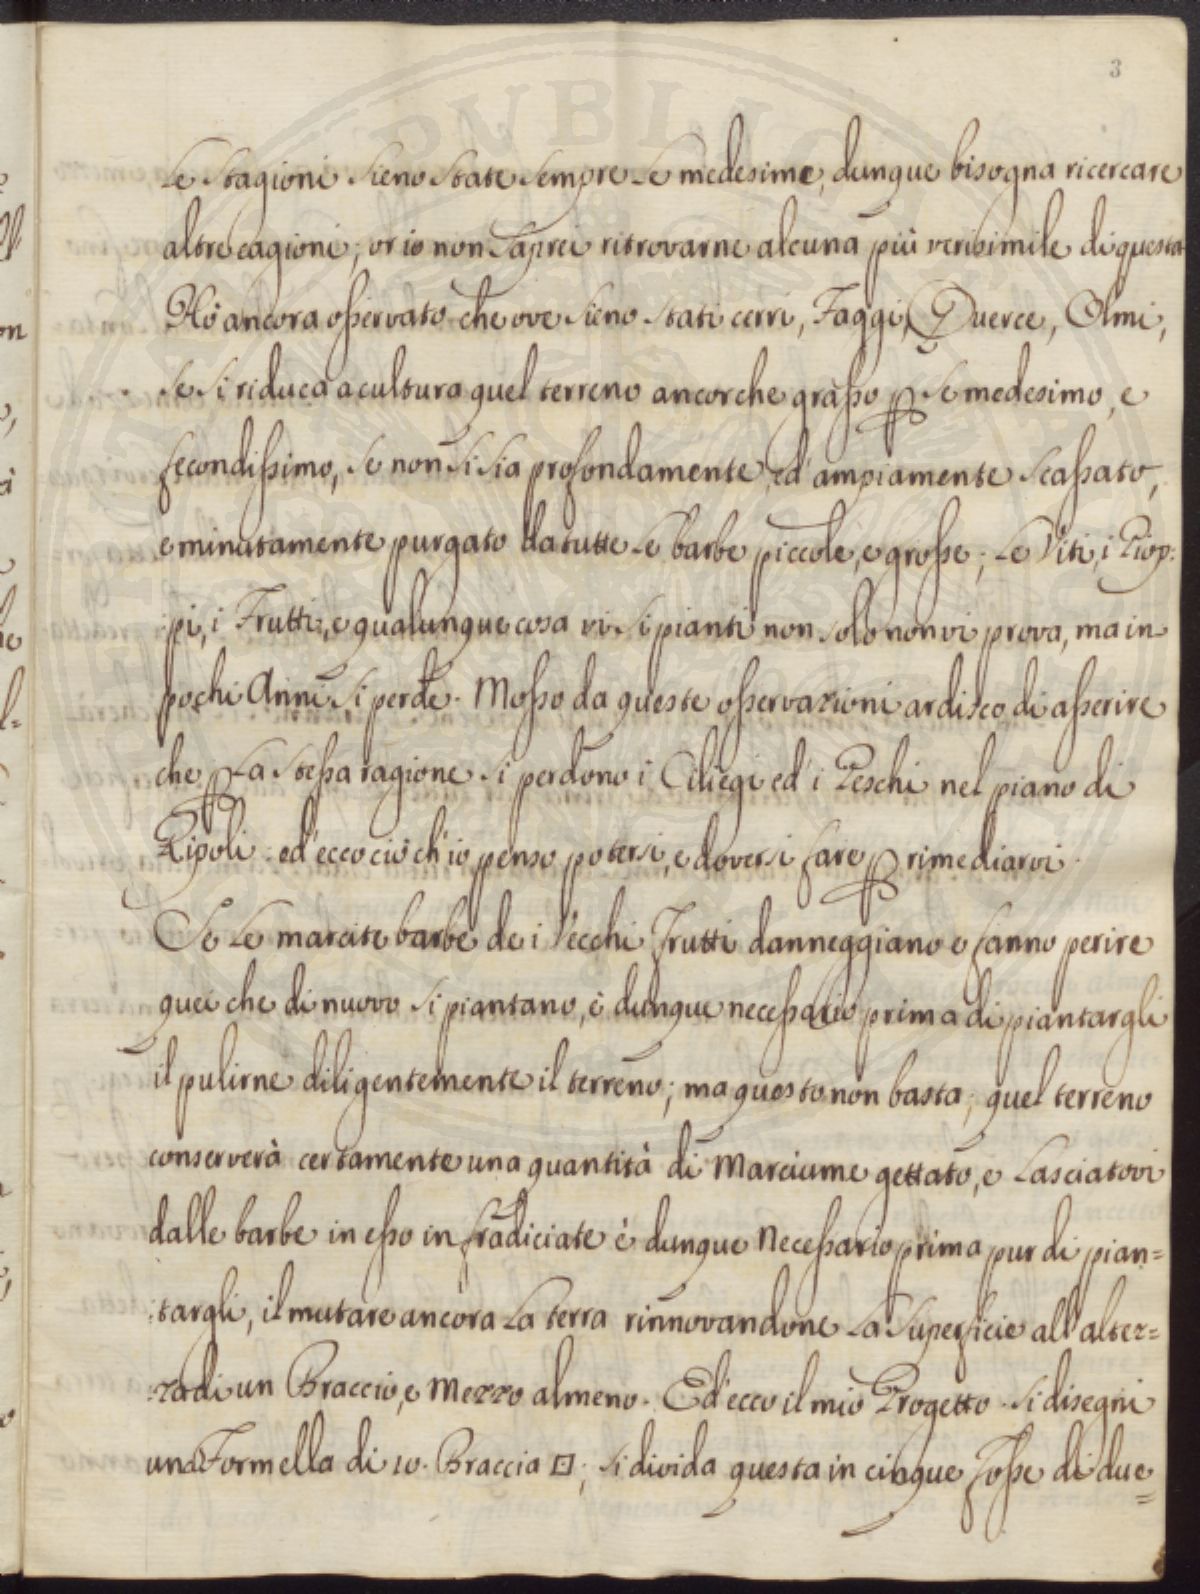 3
Le Stagioni sieno State Sempre Le medesime, dunque bisogna ricercare
altre cagioni; or io non Saprei ritrovarne alcuna più verisimile di questa
Hò ancora osservato che ove sieno stati cerri, Faggi, Querce, Olmi,
se si riduca a cultura quel terreno ancorche grasso ꝑ se medesimo, e
fecondissimo, se non si sia profondamente, ed' ampiamente scassato,
e minutamente purgato da tutte Le barbe piccole, e grosse; Le Viti, i Piop:
pi, i Frutti, e qualunque cosa vi si pianti non solo non vi prova, ma in
pochi Anni si perde. Mosso da queste osservazioni ardisco di asserire
che ꝑ La Stessa ragione si perdono i Ciliegi ed' i Peschi nel piano di
Ripoli. ed' ecco ciò ch' io penso potersi, e doversi fare ꝑ rimediarvi.
Se Le marcite barbe de i Vecchi Frutti danneggiano e fanno perire
quei che di nuovo si piantano, è dunque necessario prima di piantargli
il pulirne diligentemente il terreno; ma questo non basta; quel terreno
conserverà certamente una quantità di Marciume gettato, e Lasciatovi
dalle barbe in esso infradiciate è dunque Necessario prima pur di pian=
:targli, il mutare ancora La terra rinnovandone La Superficie all' altez=
:za di un Braccio, e Mezzo almeno. Ed' ecco il mio Progetto. si disegni
una Formella di 10. Braccia ⊡; si divida questa in cinque Fosse di due=
PUBLICA